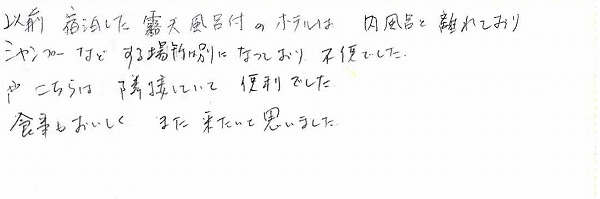 以前 宿泊した 露天風呂付のホテルは 内風呂と 離れており
シャンプーなど する場所が別になっており 不便でした。
が こちらは 隣接していて 便利でした。
食事もおいしく また 来たいと思いました。